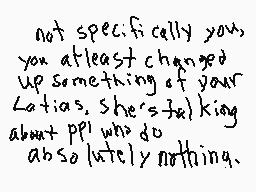 not specifically you,
you atleast changed
up something of your
Latias, she's talking
about ppl who do
absolutely nothing.